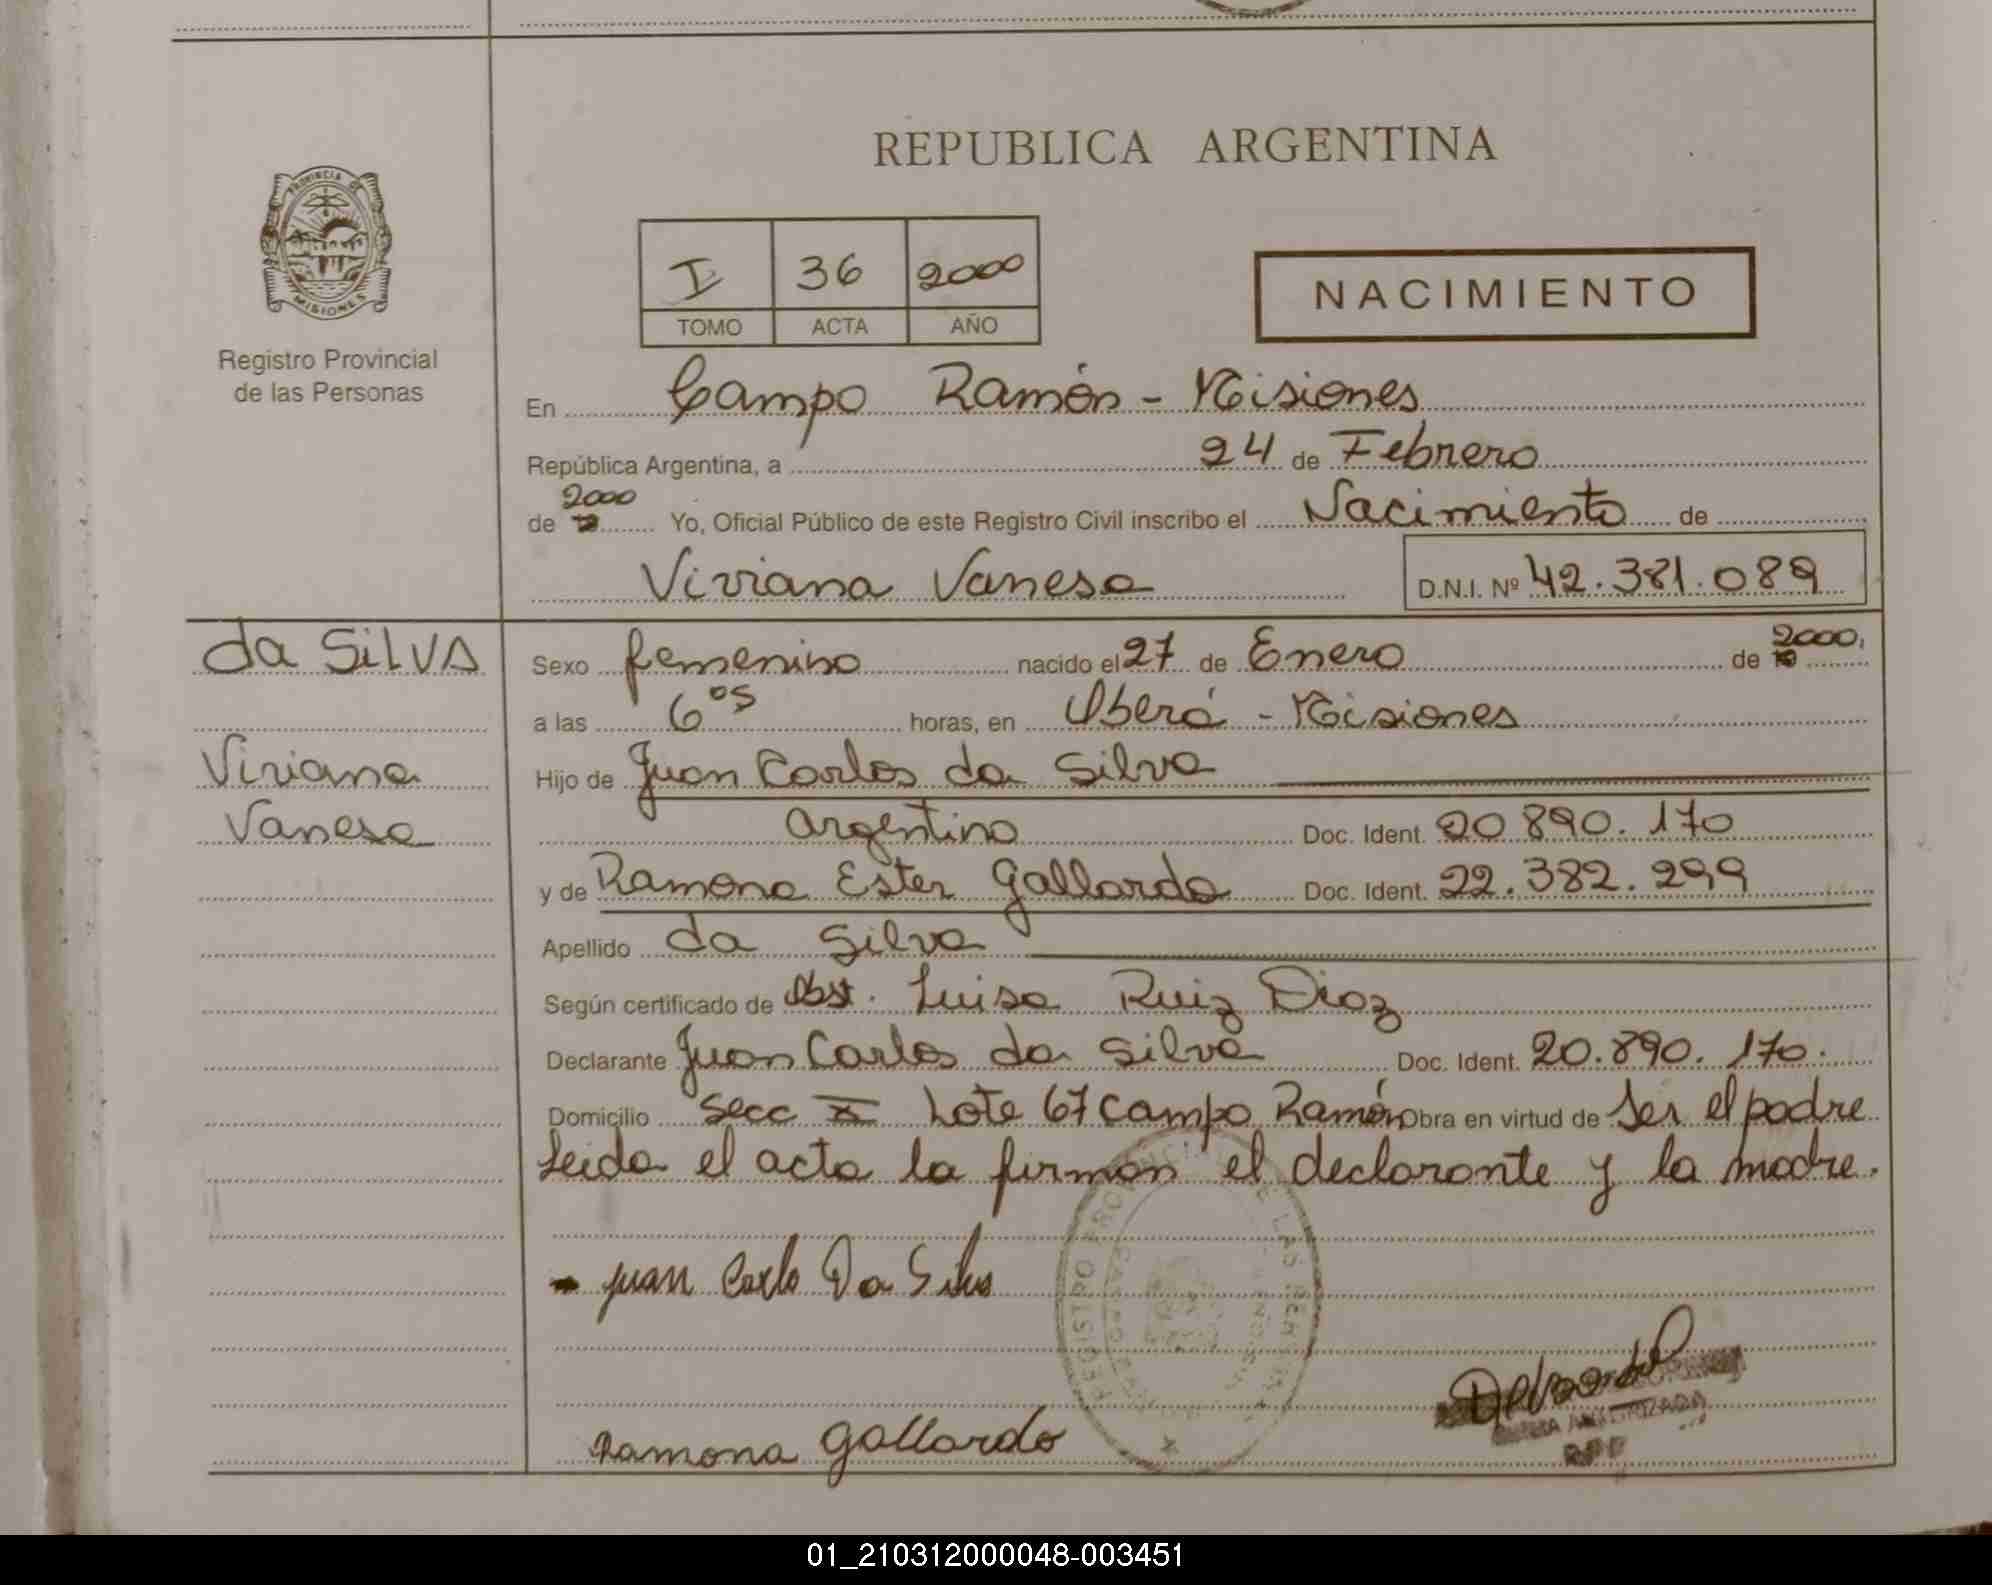 REPUBLICA ARGENTINA
PROVINCIA DE
MISIONES
Registro Provincial
de las Personas
I 36 2000
TOMO ACTA AÑO
NACIMIENTO
En Campo Ramón - Misiones
República Argentina, a 24 de Febrero
2000
de 19 Yo, Oficial Público de este Registro Civil inscribo el Nacimiento de
Viviana Vanesa D.N.I. Nº 42.381.089
da SILVA
Viviana
Vanesa
Sexo femenino nacido el 27 de Enero de 19 2000,
a las 6 05 horas, en Oberá - Misiones
Hijo de Juan Carlos da Silva
argentino Doc. Ident. 20 890.170
y de Ramona Ester Gallardo Doc. Ident. 22.382.299
Apellido da Silva
Según certificado de Obst. Luisa Ruiz Diaz
Declarante Juan Carlos da Silva Doc. Ident. 20.890.170.
Domicilio Secc X Lote 67 Campo Ramón Obra en virtud de Ser el padre
Leida el acta la firman el declarante y la madre.
REGISTRO PROVINCIAL DE LAS PERSONAS
Juan Carlo Da Silva
Ramona Gallardo
FIRMA AUTORIZADA
RPP
01_210312000048-003451